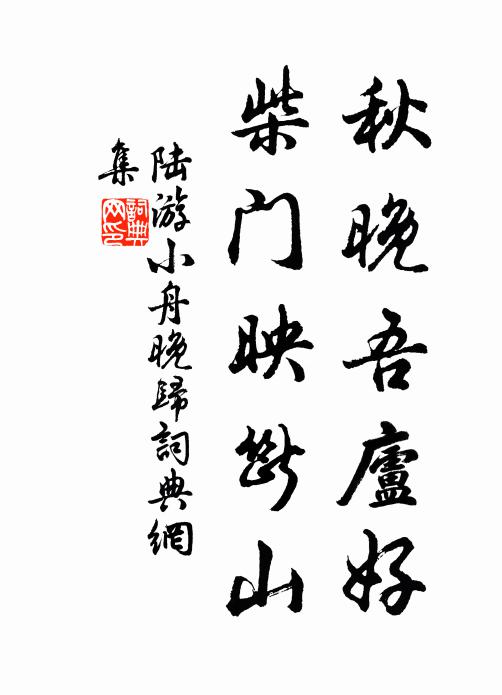 秋晚吾廬好
柴门映断山
陆游小舟晚歸詞典網
集
詞典网印